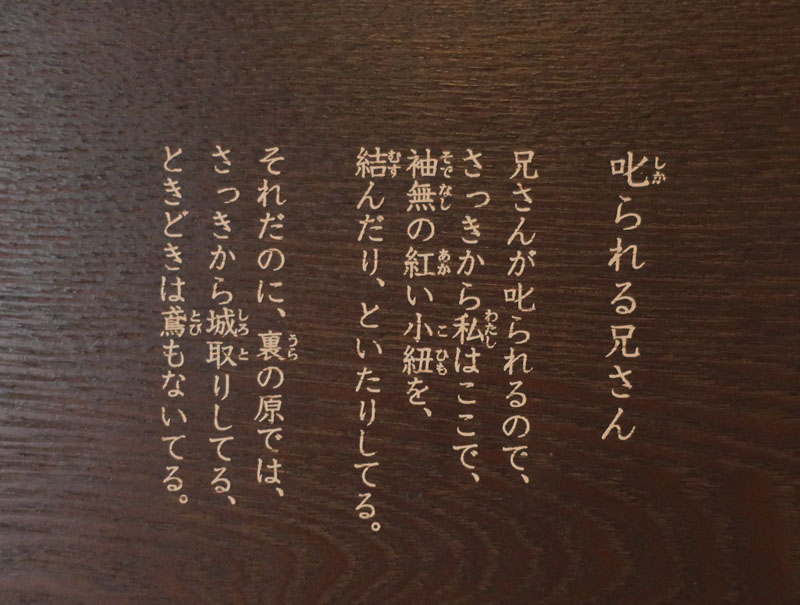 叱られる兄さん
兄さんが叱られるので、
さっきから私はここで、
袖無の紅い小紐を、
結んだり、といたりしてる。
それだのに、裏の原では、
さっきから城取りしてる、
ときどきは鳶もないてる。